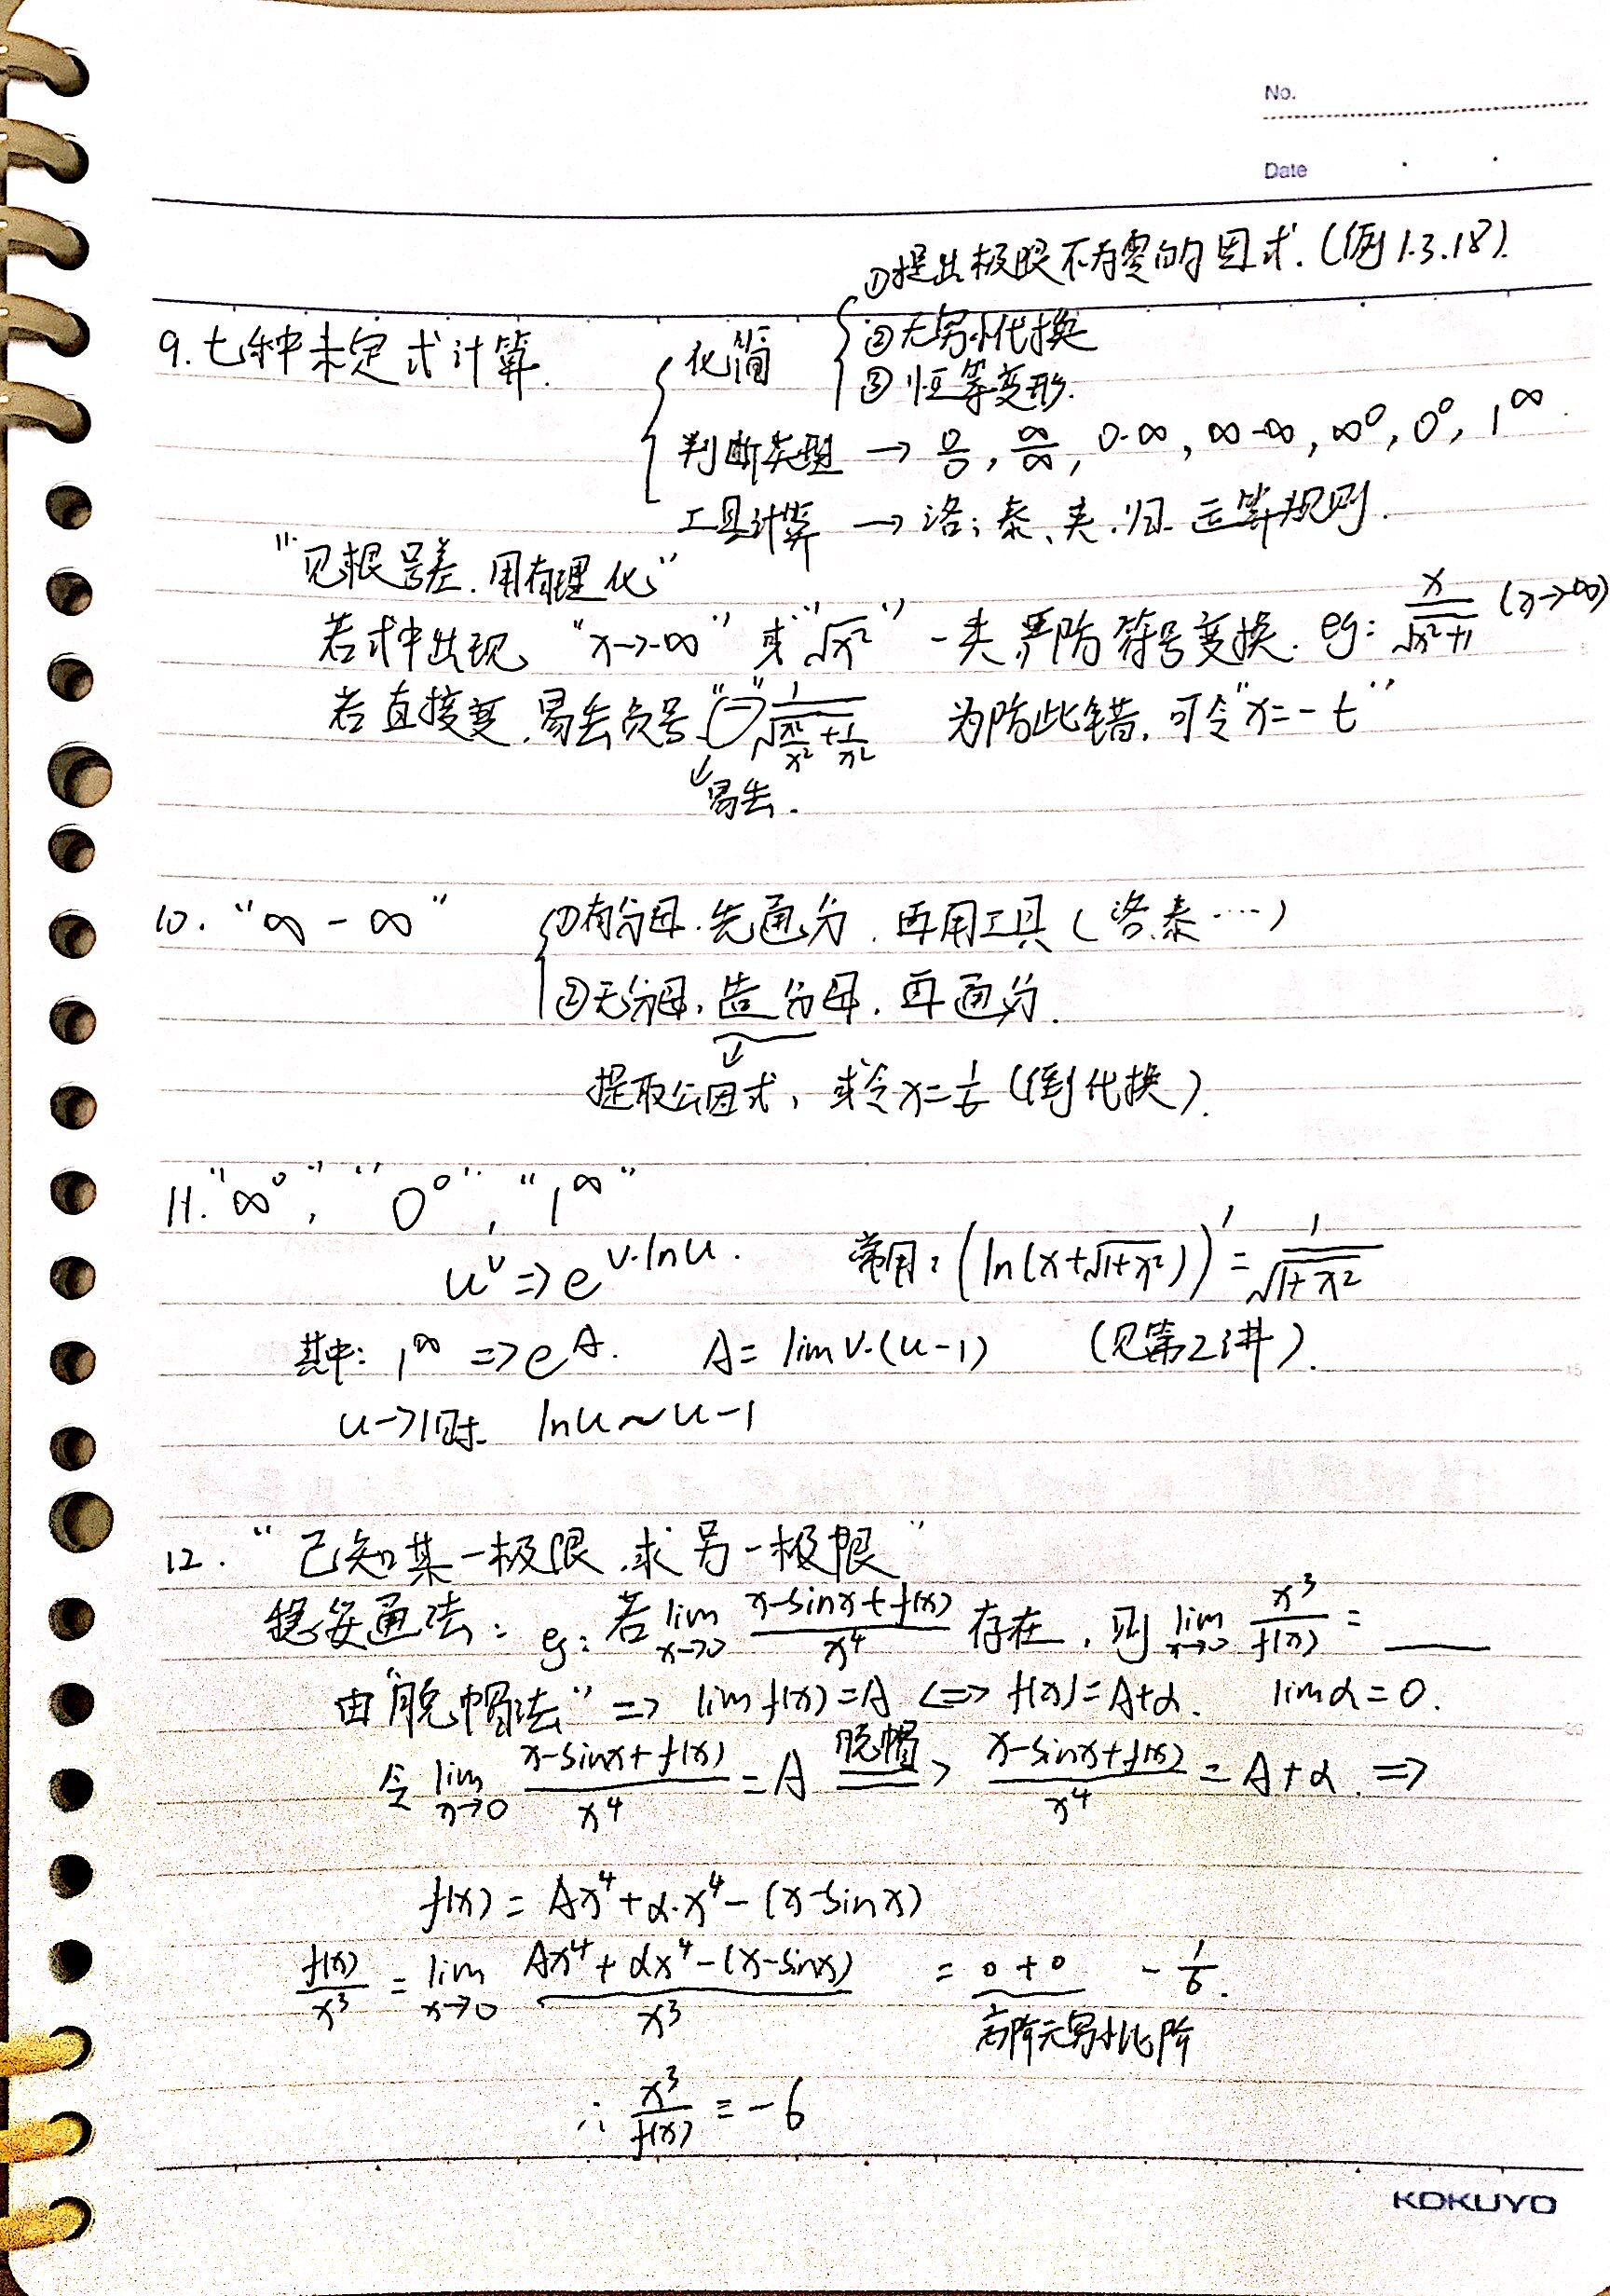 No.
Date
①提出极限不为零的因式.(例1.3.18).
9.七种未定式计算. { 化简 { ②无穷小代换
③恒等变形.
判断类型 → 0/0, ∞/∞, 0·∞, ∞-∞, ∞^0, 0^0, 1^∞.
工具计算 → 洛、泰、夹、归、运算规则.
"见根号差,用有理化"
若式中出现 "x→-∞" 或 "√x²" 一类,严防符号变换. eg: x/√(x²+1) (x→-∞)
若直接变,易丢负号 "(-)" 1/√(x²/x²+1/x²) 为防此错,可令"x=-t"
↓易丢.
10. "∞-∞" { ①有分母.先通分.再用工具(洛.泰…)
②无分母,造分母,再通分.
↓
提取公因式,或令x=1/t (倒代换).
11. "∞^0", "0^0", "1^∞"
u^v => e^(v·lnu). 常用: (ln(x+√(1+x²)))' = 1/√(1+x²)
其中: 1^∞ => e^A. A = lim v·(u-1) (见第2讲).
u→1时 lnu~u-1
12. "已知某一极限,求另一极限"
稳妥通法: eg: 若 lim x→0 (x-sinx+f(x))/x⁴ 存在,则 lim x→0 x³/f(x) = ____
由"脱帽法" => lim f(x)=A <=> f(x)=A+α. lim α=0.
令 lim x→0 (x-sinx+f(x))/x⁴ = A 脱帽 => (x-sinx+f(x))/x⁴ = A+α. =>
f(x) = Ax⁴+α·x⁴-(x-sinx)
f(x)/x³ = lim x→0 (Ax⁴+αx⁴-(x-sinx))/x³ = 0+0 -1/6.
高阶无穷小比阶
∴ x³/f(x) = -6
KOKUYO